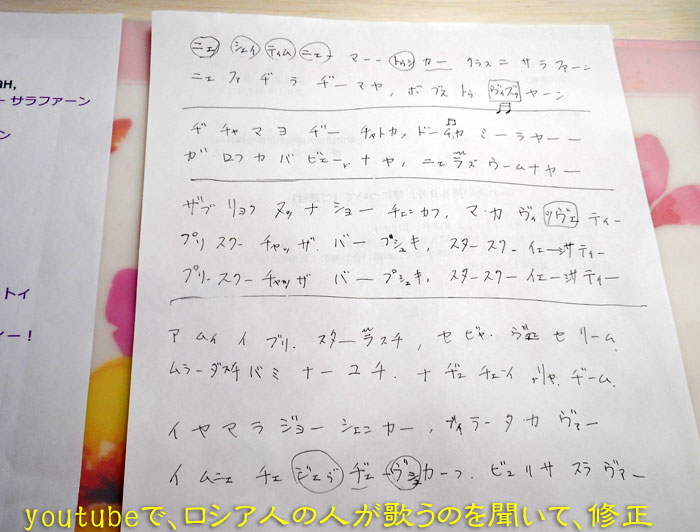 ニェ シェイ ティム ニェー マー トゥシ カー クラスニ サラファーン
ニェ ファ ヂ ラ ヂーマヤ、ボ プス トゥ ヴィズリャーン
ヂ チャ マ ヨ ヂー チャトカ、ドーチカ ミーラヤーー
ガ ロフ カ バ ビェー ナ ヤ、ニェ ラズ ウームナヤー
ザブリョフ ヌッ ナ ショー チェニカフ、マ・カ ヴィッヴェティー
プリ スクー チャッザ バー プシュキ、スタースクー イェー ティー
プリースクー チャッザ バー プシュキ、スタースクー イェー ティー
ア ム イ イ プリ スターラスチ、セ ビャ セリーム、
ムラーダスチ バ ミ ナーユチ、ナ ヂェ チェーイ ヂーム、
イ ヤ マ ラ ジョー シェニカー、ディラータカ ヴァー
イ ムニェ チェ ジェヴ ヂェーヴシュカーフ、ビェリ サ スラ ヴァー
ан,
ーサラファーン
ン
トイ
ィー！
youtubeで、ロシア人の人が歌うのを聞いて、修正